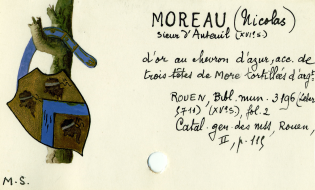 MOREAU (Nicolas)
sieur d'Auteuil (XVIe s.)
d'or au chevron d'azur, acc. de
trois têtes de More tortillées d'argt
ROUEN, Bibl. mun. 3196 (Leber
5711) (XVe s.), fol. 2
Catal. gén. des mss, Rouen,
II, p. 115
M-S.